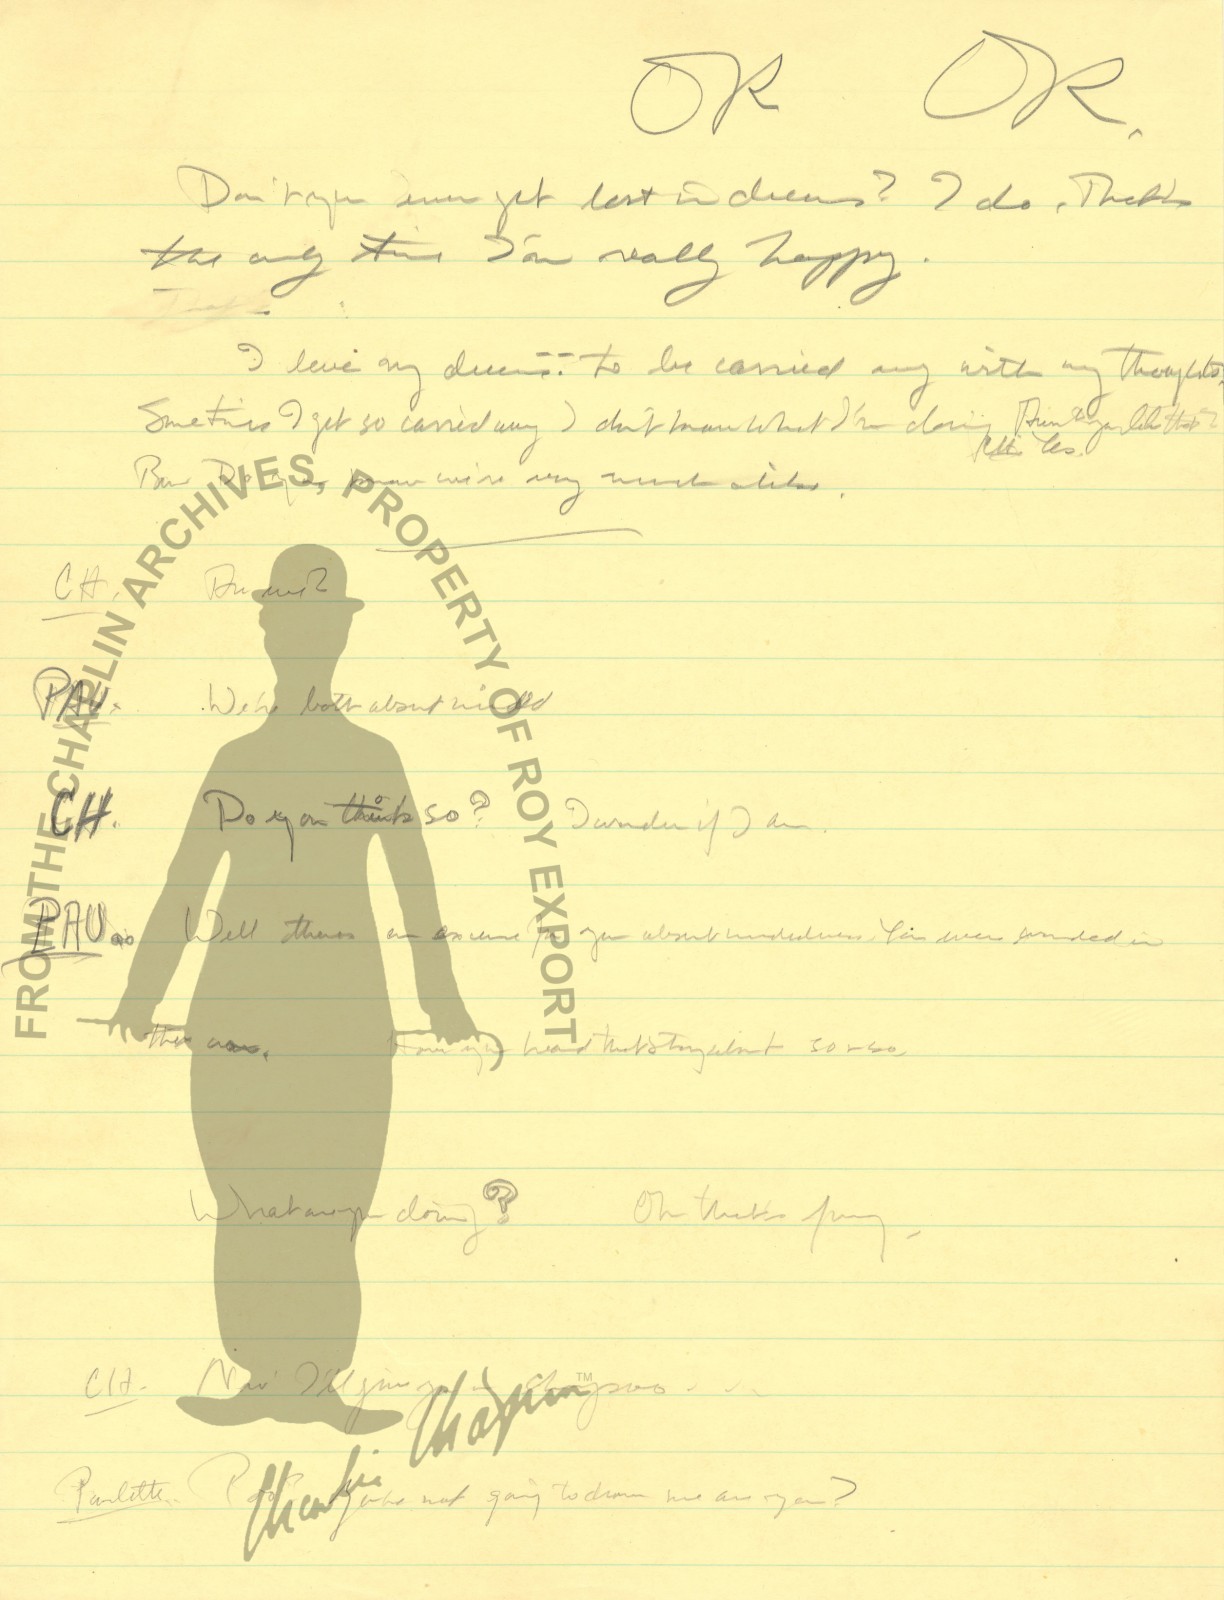 OK OK.
Don't you ever get lost in dreams? I do, That's
the only time I'm really happy.
I love my dreams to be carried away with my thoughts,
Sometimes I get so carried away I don't know what I'm doing
Yes.
know we're very much alike.
CH.
PAU. We're both absent minded
CH. Do you think so? I wonder if I am.
PAU. Well there's an excuse for your absentmindedness. You were wounded in
the war. Have you heard that story about so & so.
What are you doing? Oh that's funny.
CH. Now I'll give you a shampoo . . .
Paulette. you're not going to drown me are you?
FROM THE CHAPLIN ARCHIVES, PROPERTY OF ROY EXPORT
Charlie Chaplin™